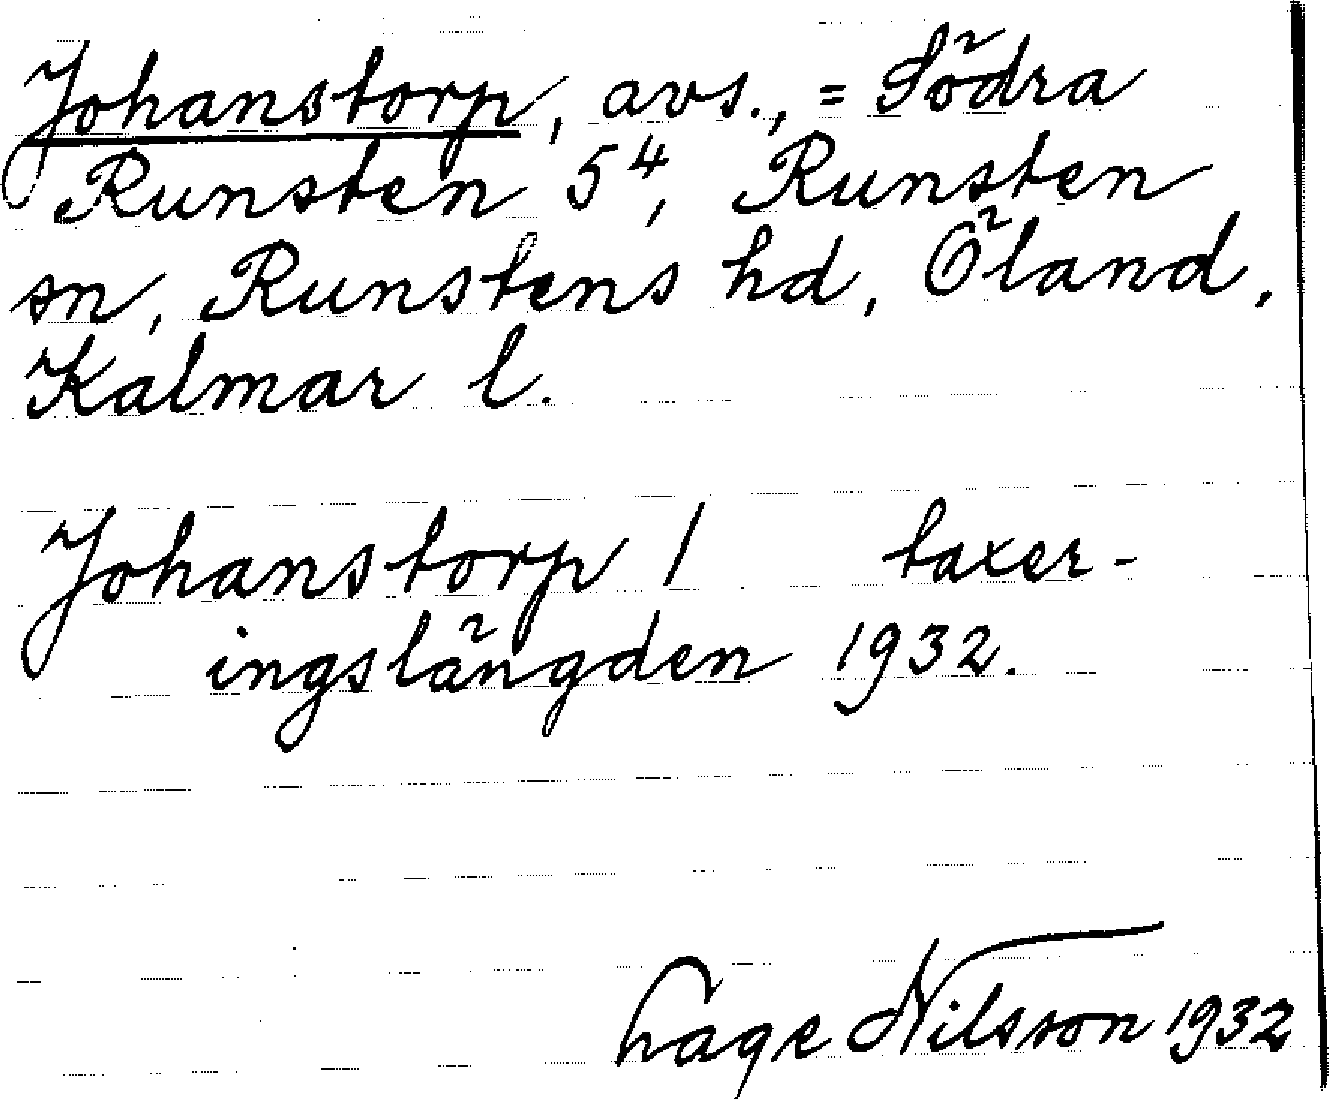 Johanstorp, avs., = Södra
Runsten 5⁴, Runsten
sn, Runstens hd, Öland,
Kalmar l.
Johanstorp / taxer-
ingslängden 1932.
Lage Nilsson 1932